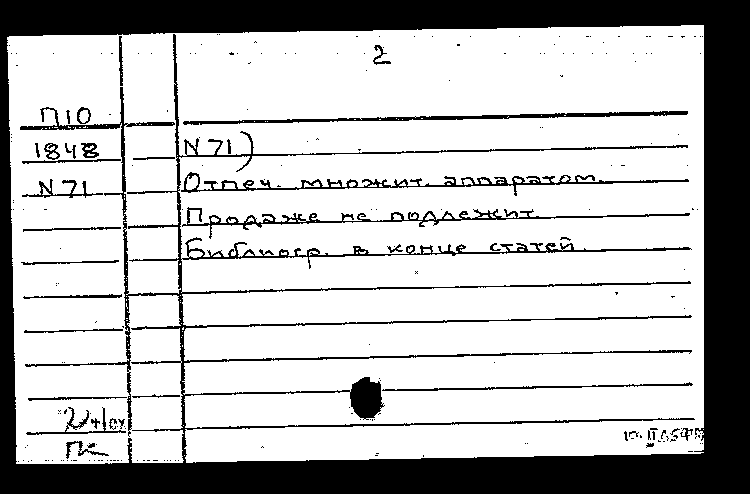 2
П10
1848
N 71
N 71)
Отпеч. множит. аппаратом.
Продаже не подлежит.
Библиогр. в конце статей.
ПК